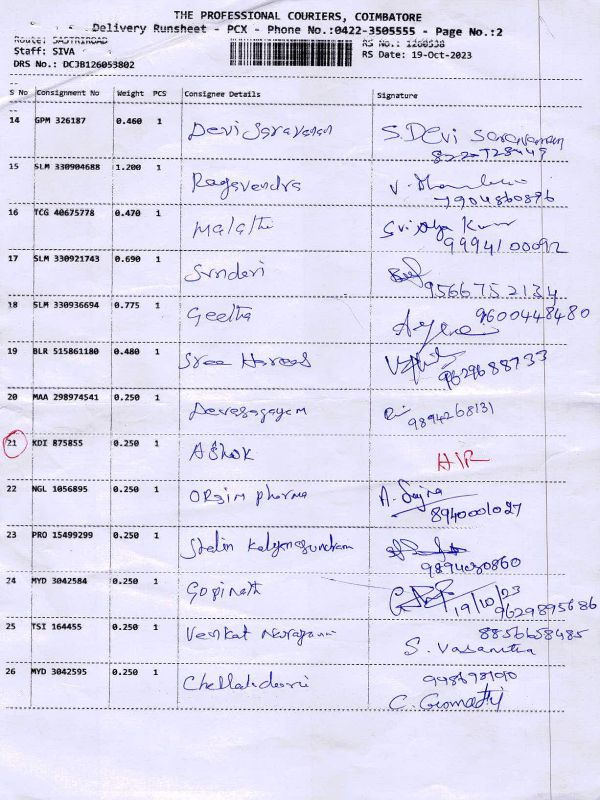 THE PROFESSIONAL COURIERS, COIMBATORE
Delivery Runsheet - PCX - Phone No.:0422-3505555 - Page No.:2
Route: SASTRIROAD
RS No.: 1260538
Staff: SIVA
RS Date: 19-Oct-2023
DRS No.: DCJB126053802
S No Consignment No Weight PCS Consignee Details Signature
14 GPM 326187 0.460 1 Devi Saravanan S. Devi Saravanan
15 SLM 330904688 1.200 1 Ragavendra V.
7904860896
16 TCG 40675778 0.470 1 Malathi
9994100092
17 SLM 330921743 0.690 1 Sundari
9566752134
18 SLM 330936694 0.775 1 Geetha 9600448480
19 BLR 515861180 0.480 1 Sree
9629688733
20 MAA 298974541 0.250 1 Devasagayam
9894268131
21 KDI 875855 0.250 1 Ashok
22 NGL 1056895 0.250 1 Pharma A.
8940001027
23 PRO 15499299 0.250 1 Stalin Kalyanasundram
24 MYD 3042584 0.250 1 Gopinath 19/10/23
9629895686
25 TSI 164455 0.250 1 Venkat 8856658485
S. Vasantha
26 MYD 3042595 0.250 1
C. Gomathi